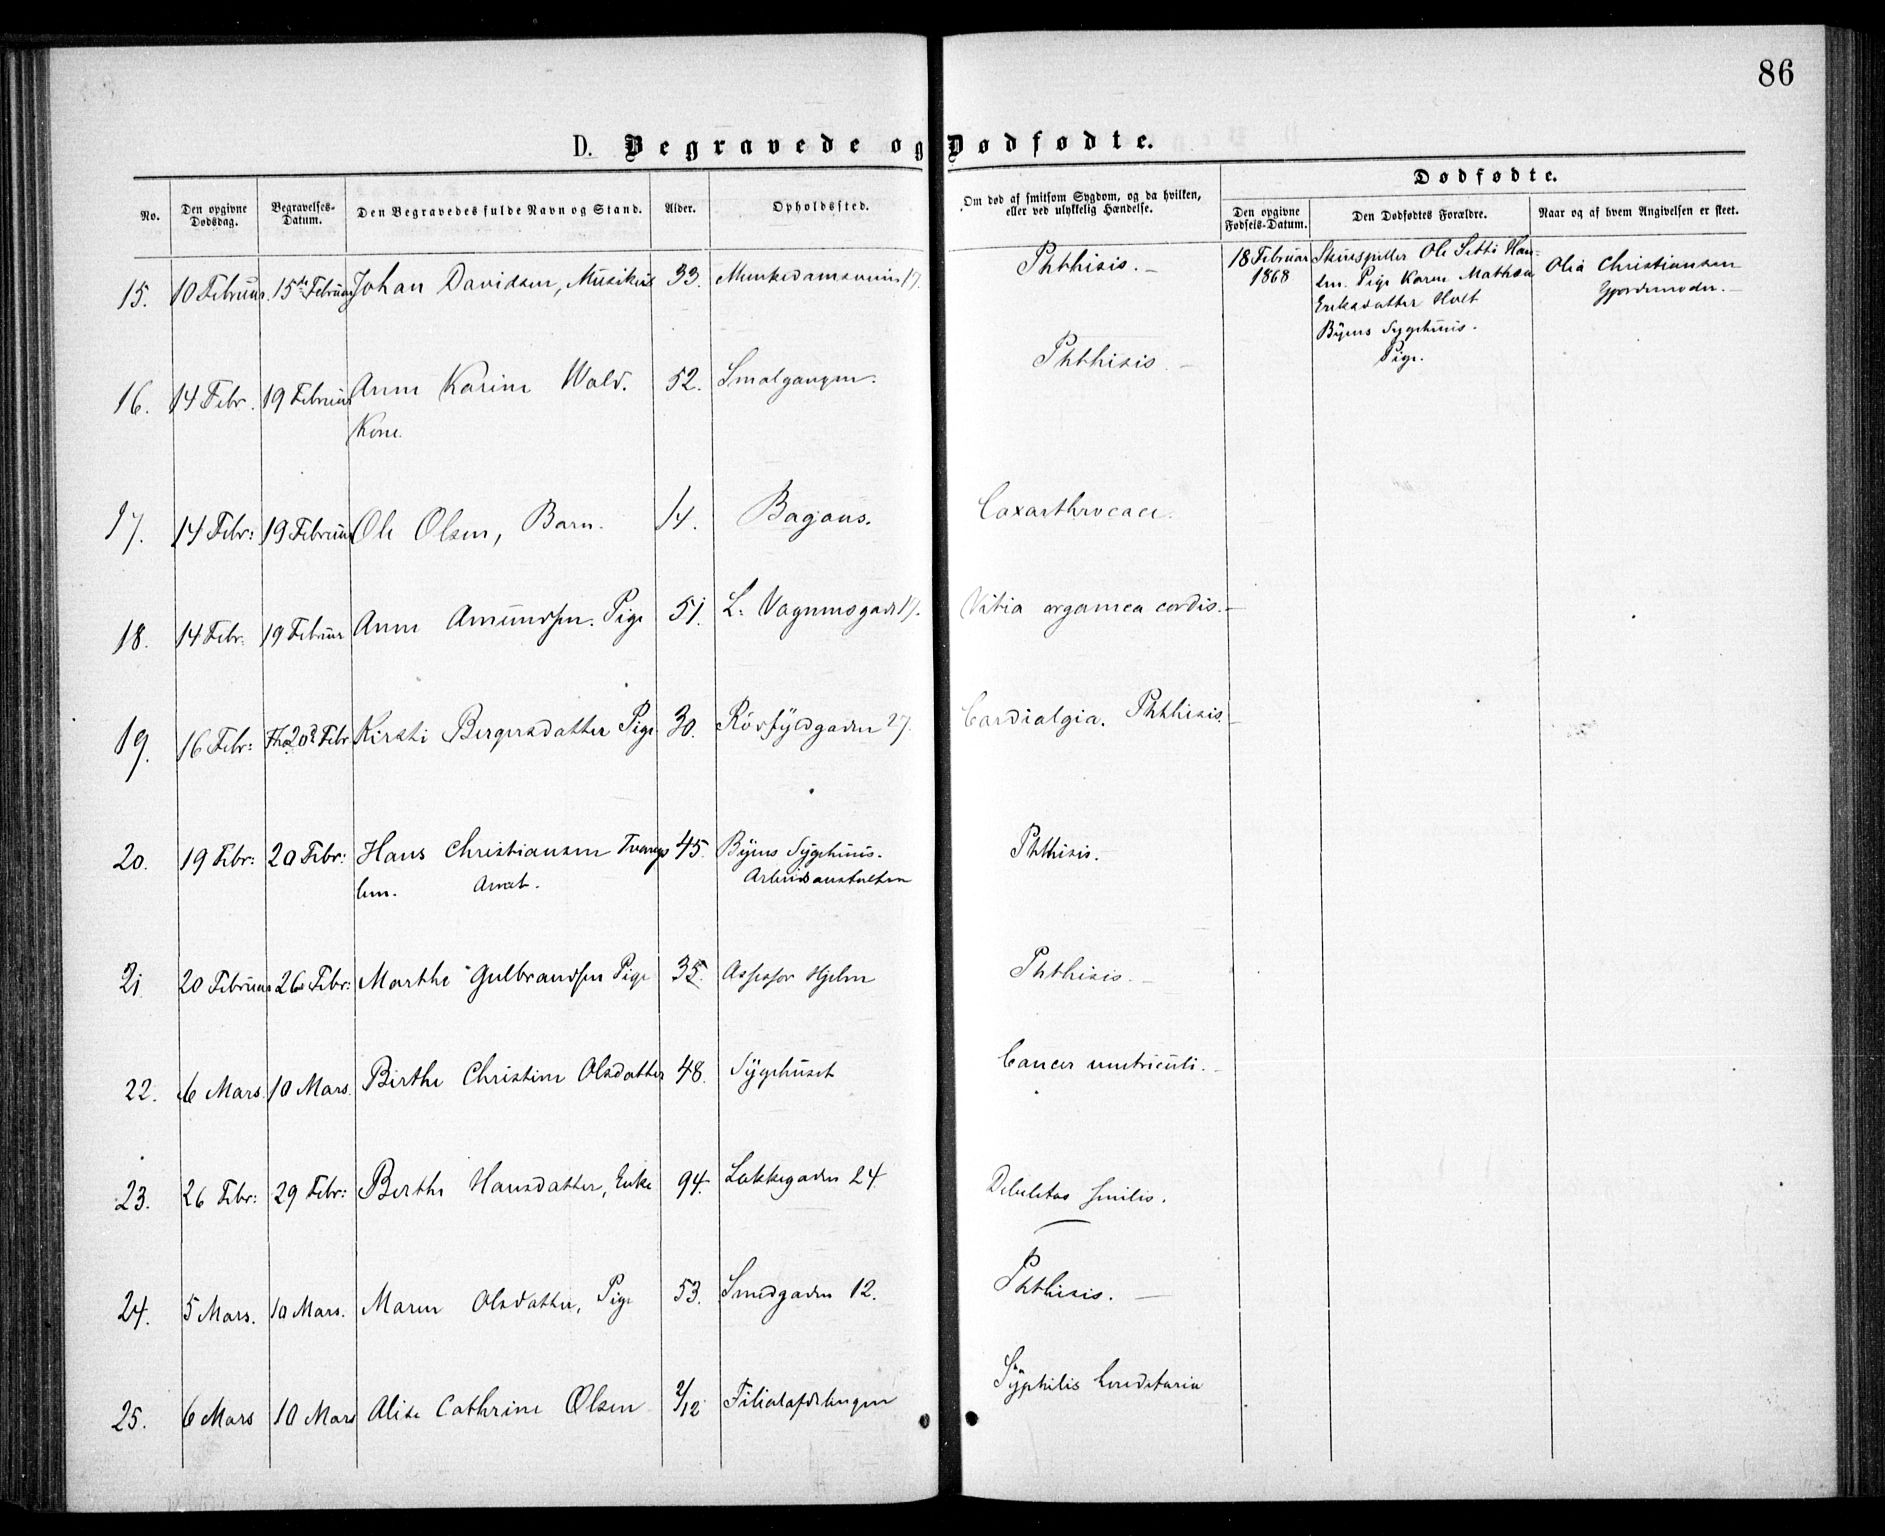 86
D. Begravede og Dødfødte.
No. Den opgivne Dødsdag. Begravelses-Datum. Den Begravedes fulde Navn og Stand. Alder. Opholdssted. Om død af smitsom Sygdom, og da hvilken, eller ved ulykkelig Hændelse. Dødfødte.
Den opgivne Fødsels-Datum. Den Dødfødtes Forældre. Naar og af hvem Angivelsen er skeet.
15. 10 Februar 15de Februar Johan Davidsen, Musikus 33. Munkedamsveien 17. Phthisis.
18 Februar 1868 Skuespiller Ole Setti Han-
sen. Pige Karen Mathea
Eriksdatter Holt
Byens Sygehuus.
Pige.
Olia Christiansen
Gjordemoder.
16. 14 Febr. 19 Februar Anne Karine Wold. 52. Smalgangen. Phthisis.
Kone.
17. 14 Febr: 19 Februar Ole Olsen, Barn. 14. Bagaas. Coxarthrocace.
18. 14 Febr. 19 Februar Anne Amundsen. Pige 51. L. Vognmsgade 17. Vitia organica cordis.
19. 16 Febr: 20 Febr Kirsti Bergersdatter Pige 30. Rörfyldgaden 27. Cardialgia. Phthisis.
20. 19 Febr: 20 Febr: Hans Christiansen Tvengs 45. Byens Sygehuus. Phthisis.
len. Arrest. Arbeidsanstalten
21 20 Februar 26 Febr: Marthe Gulbrandsen Pige 35. Assessor Hjelm Phthisis.
22. 6 Mars. 10 Mars. Birthe Christine Olsdatter 48. Sygehuset Cancer ventriculi.
23. 26 Febr: 29 Febr: Berthe Hansdatter, Enke 94. Lakkegaden 24 Debilitas senilis.
24. 5 Mars. 10 Mars. Maren Olsdatter, Pige 53. Smedgaden 12. Phthisis.
25. 6 Mars 10 Mars Alise Cathrine Olsen 2/12 Filialafdelingen Syphilis hereditaria